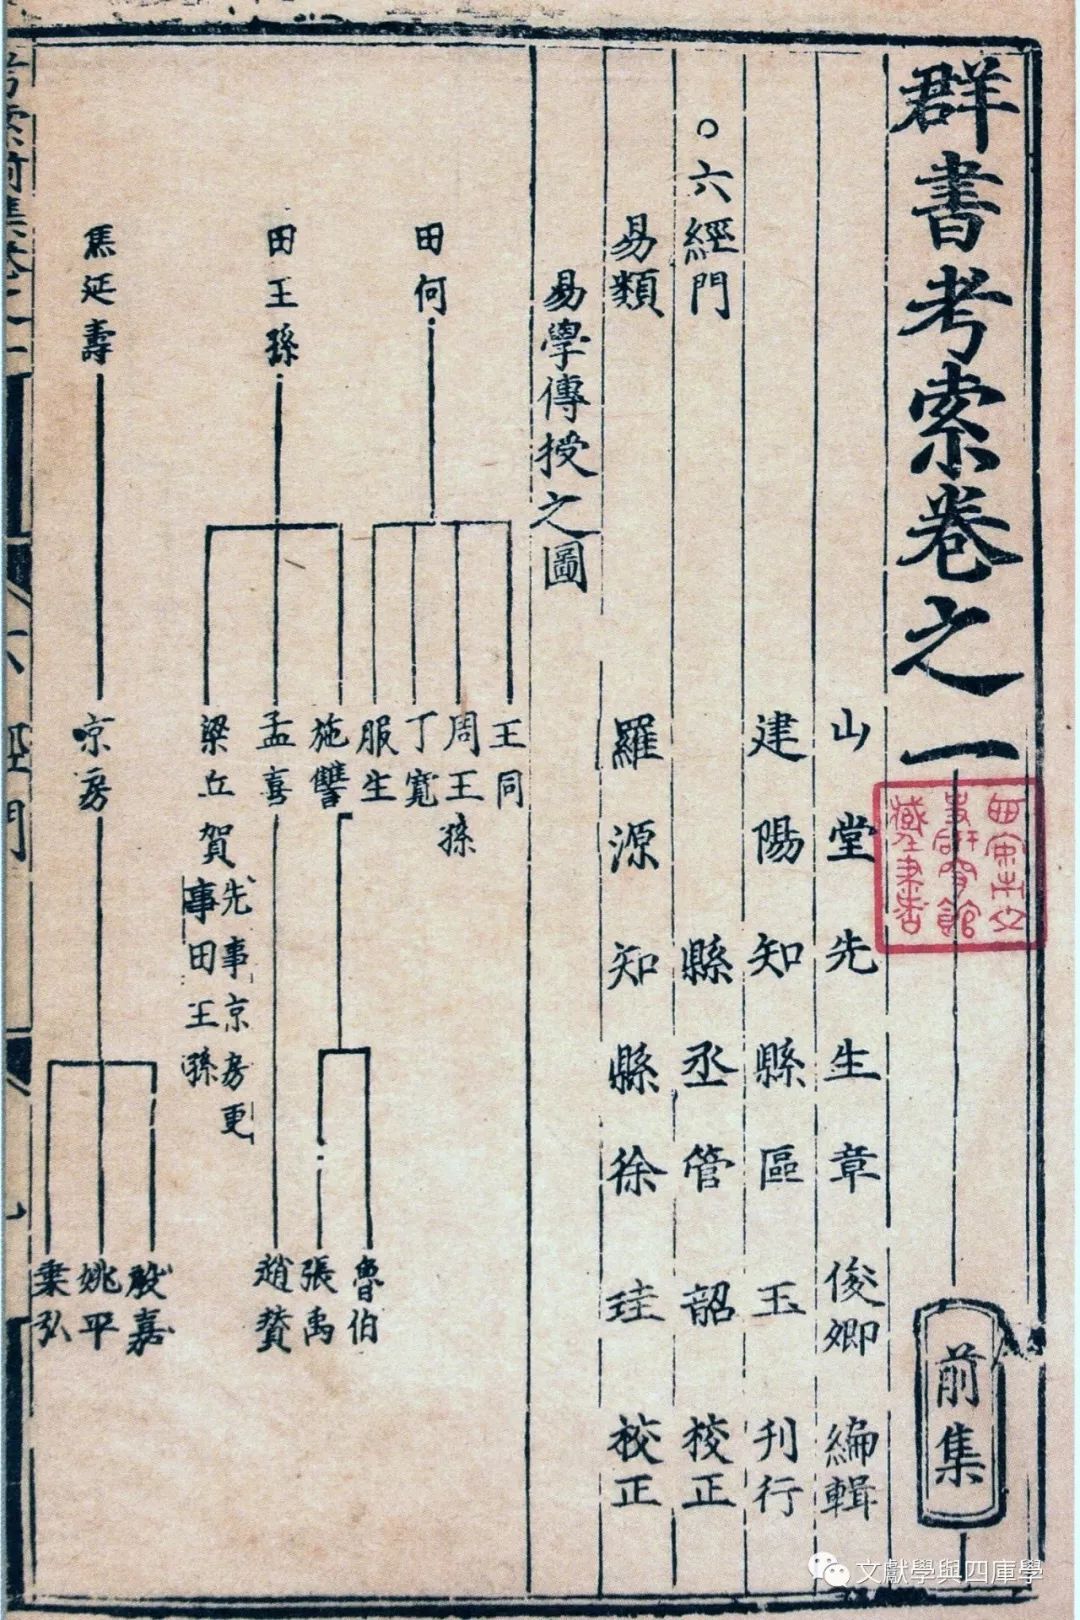 群書考索卷之一
前集
山堂先生章俊卿編輯
建陽知縣區玉刊行
縣丞管韶校正
羅源知縣徐珪校正
。六經門
易類
易學傳授之圖
田何
王同
周王孫
丁寬
服生
田王孫
施讐
孟喜
梁丘賀
先事京房更
事田王孫
魯伯
張禹
趙賛
焦延壽
京房
殷嘉
姚平
乗弘
文獻學與四庫學